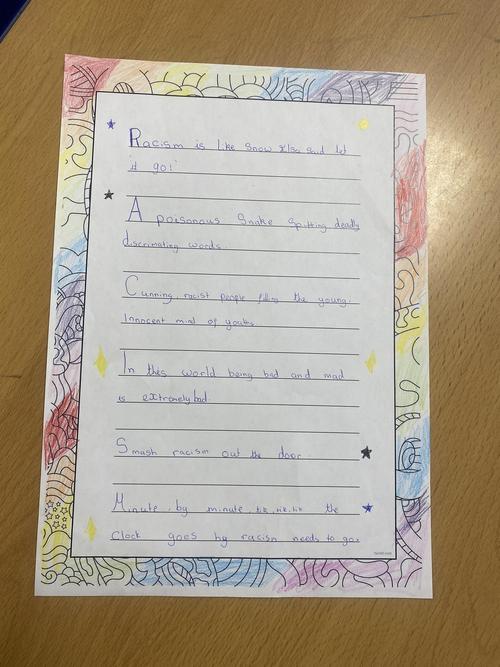 Racism is like snow Elsa said let
it go!
A poisonous snake spitting deadly
discrimating words.
Cunning, racist people filling the young,
Innocent mind of youths
In this world being bad and mad
is extremely bad.
Smash racism out the door.
Minute by minute, tik, tik, tik the
Clock goes by racism needs to go.